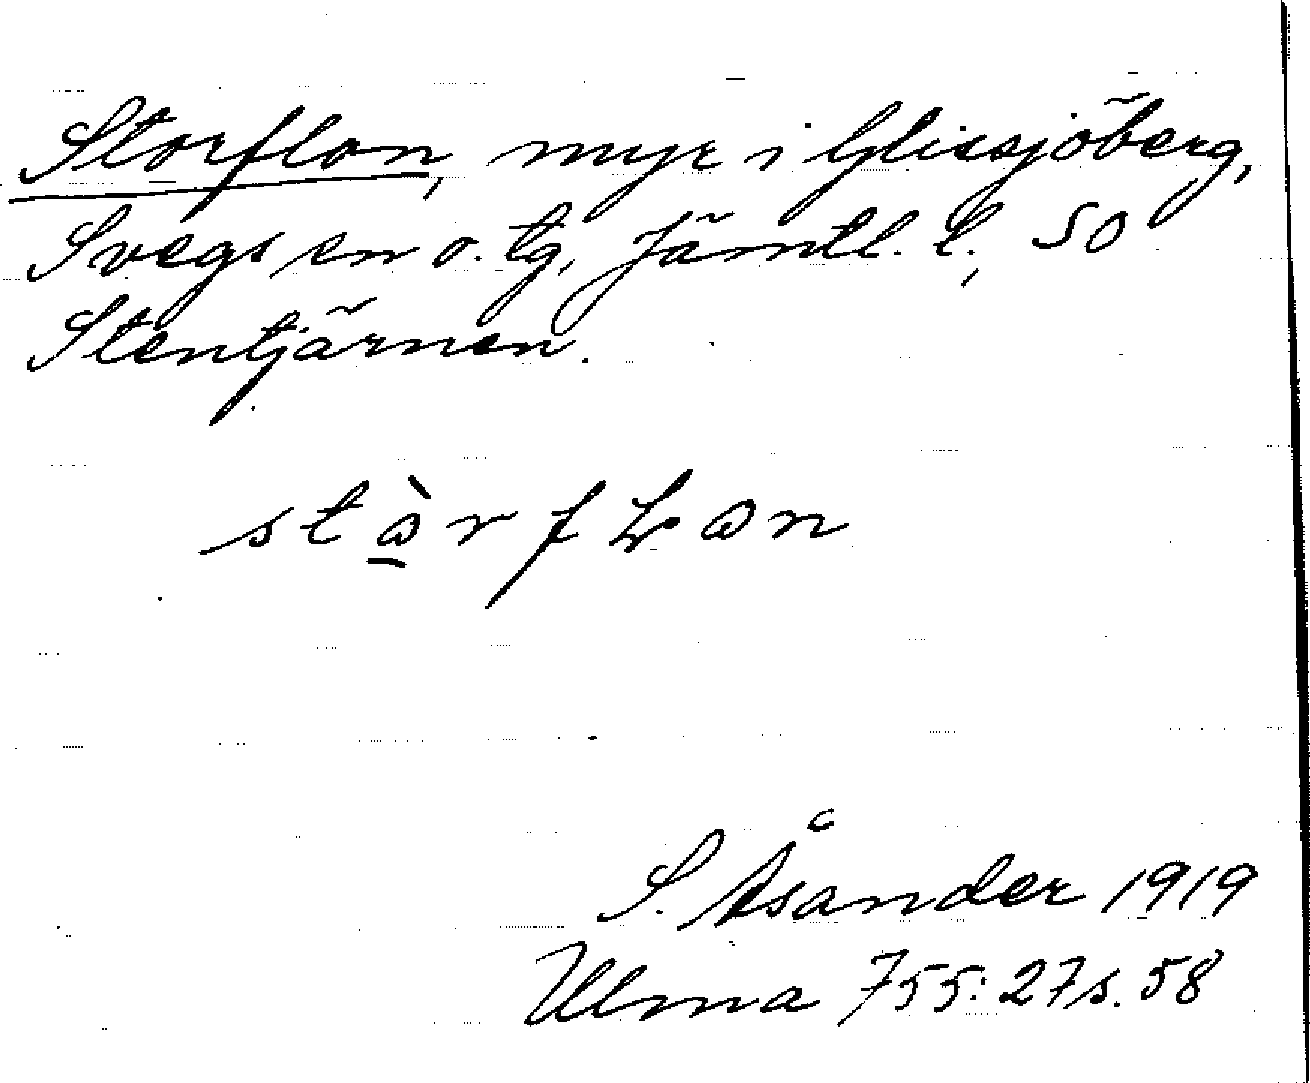 Storflon, myr i Glissjöberg,
Svegs sn o. tg, Jämtl. l., SO
Stentjärnen.
S. Åsander 1919
Ulma 755:27 s. 58